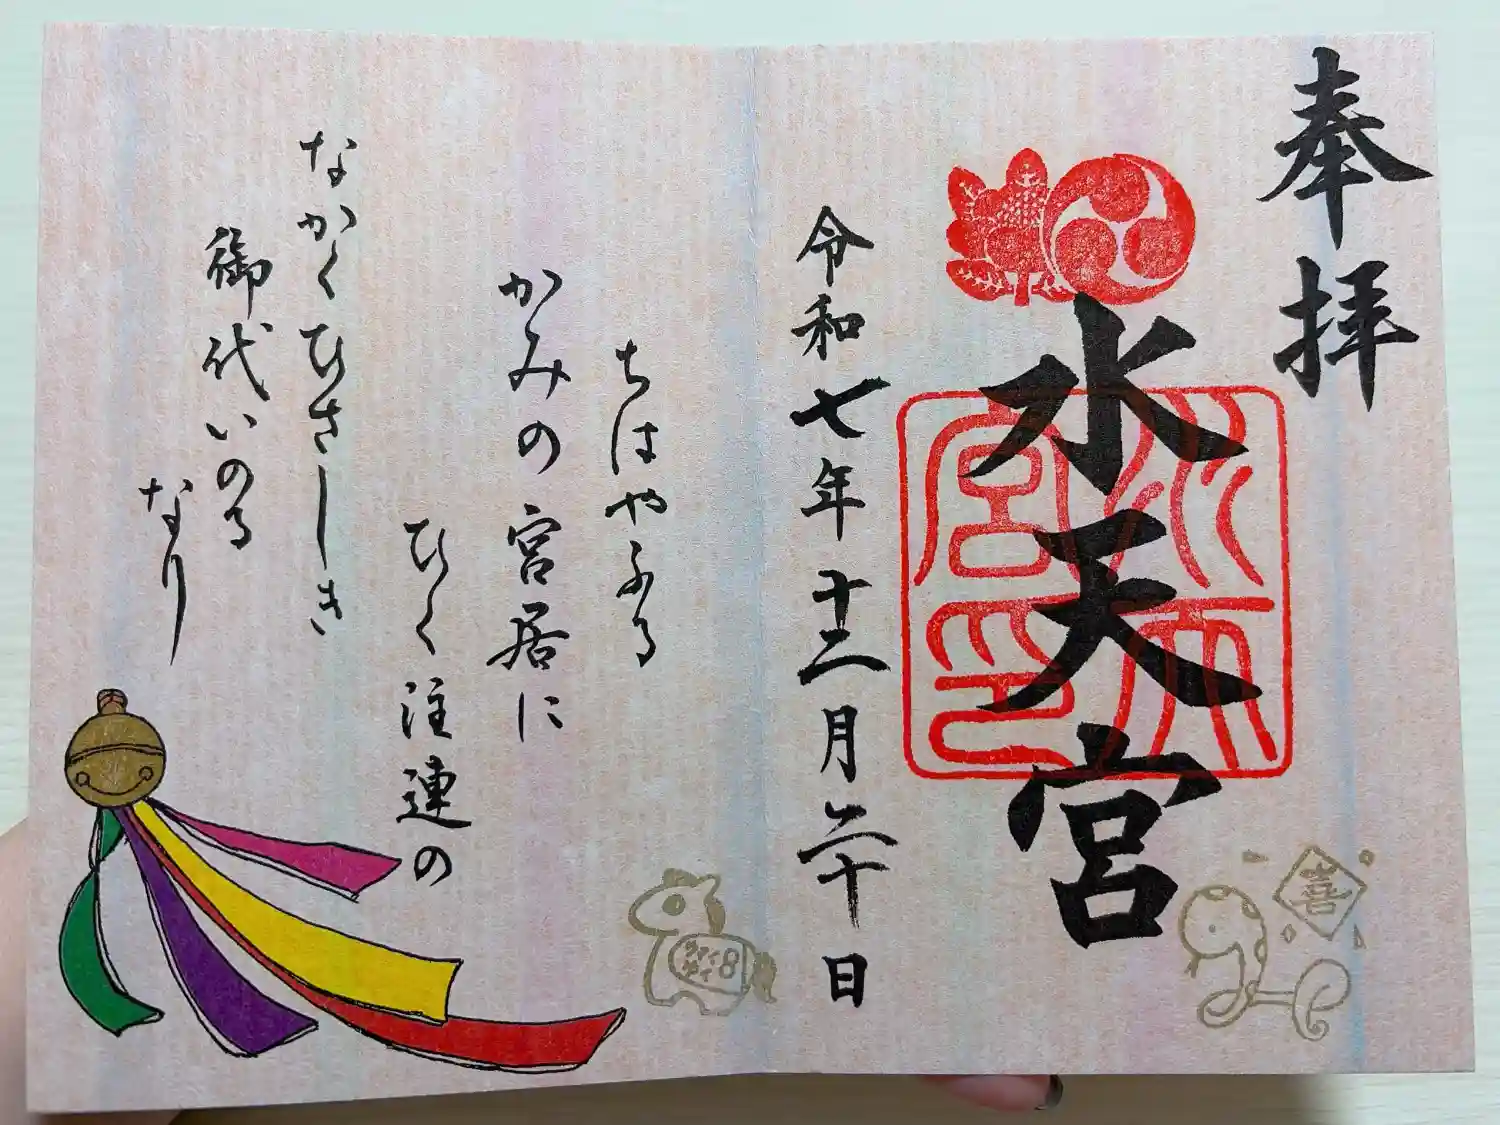 奉拝
水天宮
水天宮印
令和七年十二月二十日
喜
ちはやふる
かみの宮居に
ひく注連の
なかくひさしき
御代いのる
なり